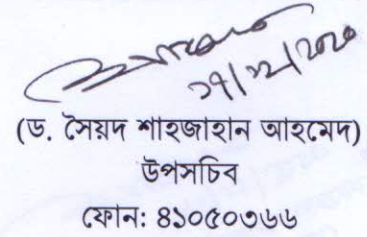 (ড. সৈয়দ শাহজাহান আহমেদ)
উপসচিব
ফোন: ৪১০৫০৩৬৬